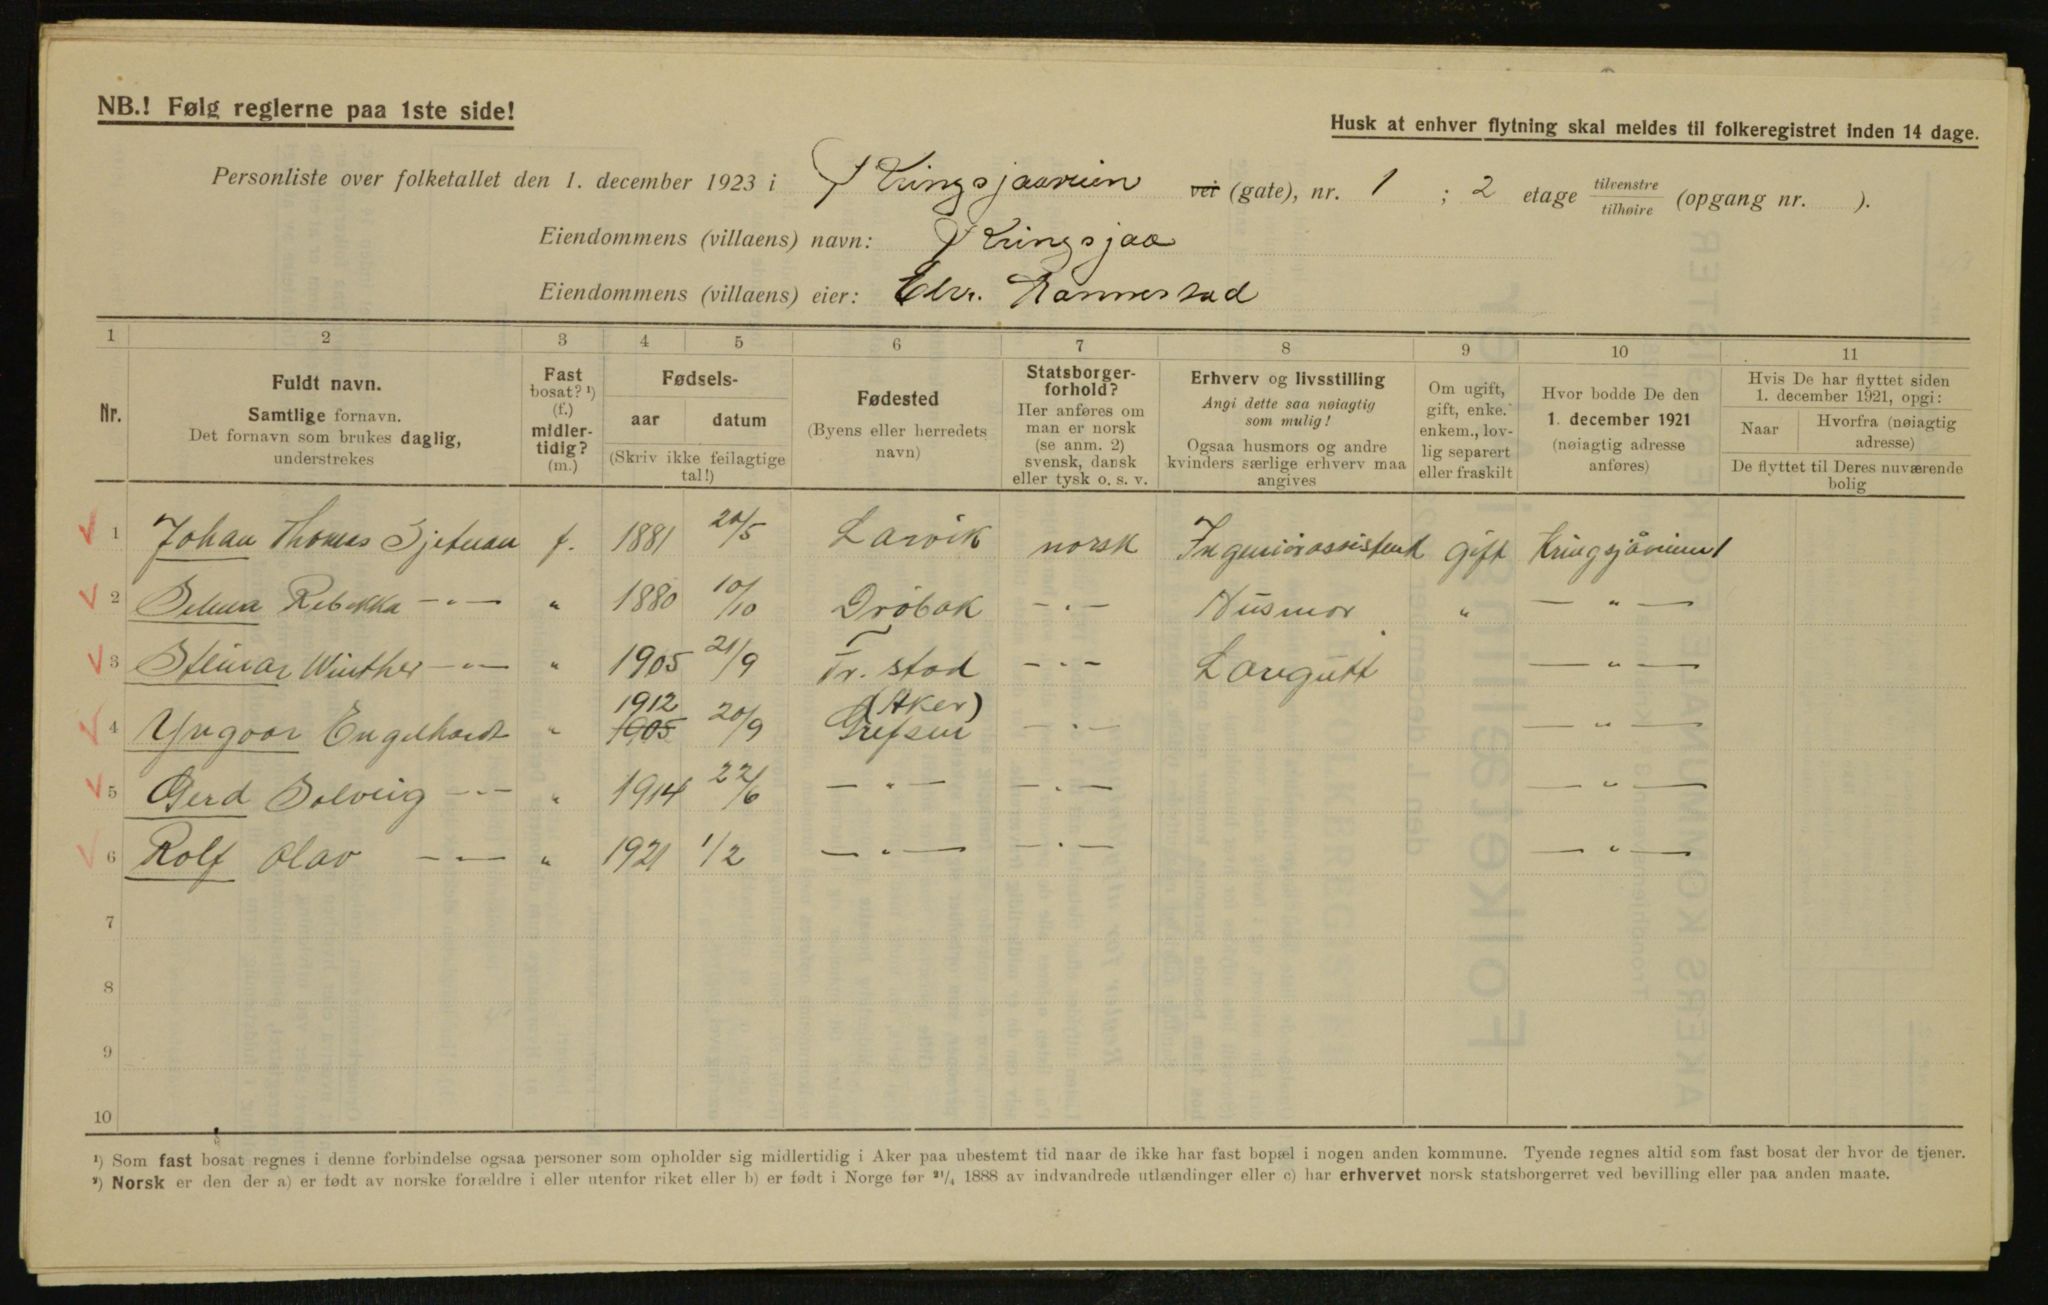 NB.! Følg reglerne paa 1ste side!
Husk at enhver flytning skal meldes til folkeregistret inden 14 dage.
Personliste over folketallet den 1. december 1923 i Kringsjaaveien vei (gate), nr. 1 ; 2 etage tilvenstre/tilhøire (opgang nr. ).
Eiendommens (villaens) navn: Kringsjaa
Eiendommens (villaens) eier: Chr. Hannestad
1 2 3 4 5 6 7 8 9 10 11
Nr.
Fuldt navn.
Samtlige fornavn.
Det fornavn som brukes daglig,
understrekes
Fast
bosat? ¹)
(f.)
midler-
tidig?
(m.)
Fødsels-
aar datum
(Skriv ikke feilagtige
tal!)
Fødested
(Byens eller herredets
navn)
Statsborger-
forhold?
Her anføres om
man er norsk
(se anm. 2)
svensk, dansk
eller tysk o. s. v.
Erhverv og livsstilling
Angi dette saa nøiagtig
som mulig!
Ogsaa husmors og andre
kvinders særlige erhverv maa
angives
Om ugift,
gift, enke.
enkem., lov-
lig separert
eller fraskilt
Hvor bodde De den
1. december 1921
(nøiagtig adresse
anføres)
Hvis De har flyttet siden
1. december 1921, opgi:
Naar
Hvorfra (nøiagtig
adresse)
De flyttet til Deres nuværende
bolig
1 Johan Thomas f. 1881 20/5 Larvik norsk Ingeniørassistent Gift Kringsjåveien 1
2 Rebekka —"— " 1880 10/10 Drøbak —"— Husmor " —"—
3 Steinar Winther —"— " 1905 21/9 Fr.stad —"— —"—
4 Yngvar Engelhardt " 1912 1905 20/9 (Aker) Grefsen —"— —"—
5 Gerd Solveig —"— " 1914 22/6 —"— —"— —"—
6 Rolf Olav —"— " 1921 1/2 —"— —"— —"—
7
8
9
10
¹) Som fast bosat regnes i denne forbindelse ogsaa personer som opholder sig midlertidig i Aker paa ubestemt tid naar de ikke har fast bopæl i nogen anden kommune. Tyende regnes altid som fast bosat der hvor de tjener.
²) Norsk er den der a) er født av norske forældre i eller utenfor riket eller b) er født i Norge før ²¹/₄ 1888 av indvandrede utlændinger eller c) har erhvervet norsk statsborgerret ved bevilling eller paa anden maate.